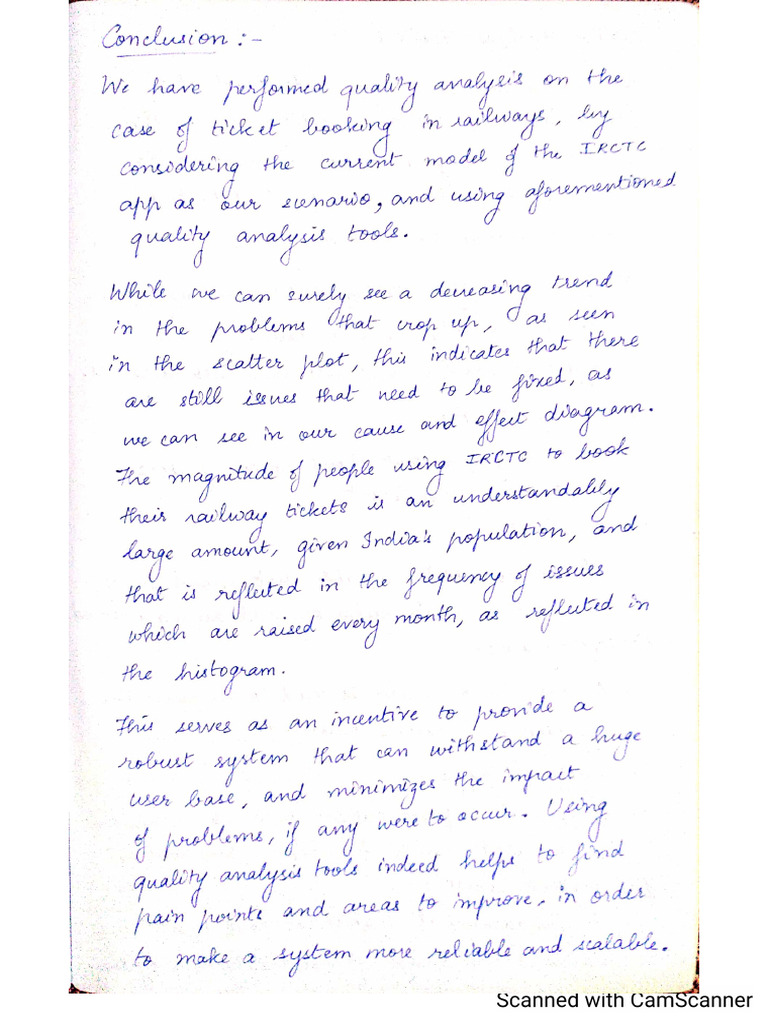 Conclusion :-
We have performed quality analysis on the
case of ticket booking in railways, by
considering the current model of the IRCTC
app as our scenario, and using aforementioned
quality analysis tools.
While we can surely see a decreasing trend
in the problems that crop up, as seen
in the scatter plot, this indicates that there
are still issues that need to be fixed, as
we can see in our cause and effect diagram.
The magnitude of people using IRCTC to book
their railway tickets is an understandably
large amount, given India's population, and
that is reflected in the frequency of issues
which are raised every month, as reflected in
the histogram.
This serves as an incentive to provide a
robust system that can withstand a huge
user base, and minimizes the impact
of problems, if any were to occur. Using
quality analysis tools indeed helps to find
pain points and areas to improve, in order
to make a system more reliable and scalable.
Scanned with CamScanner